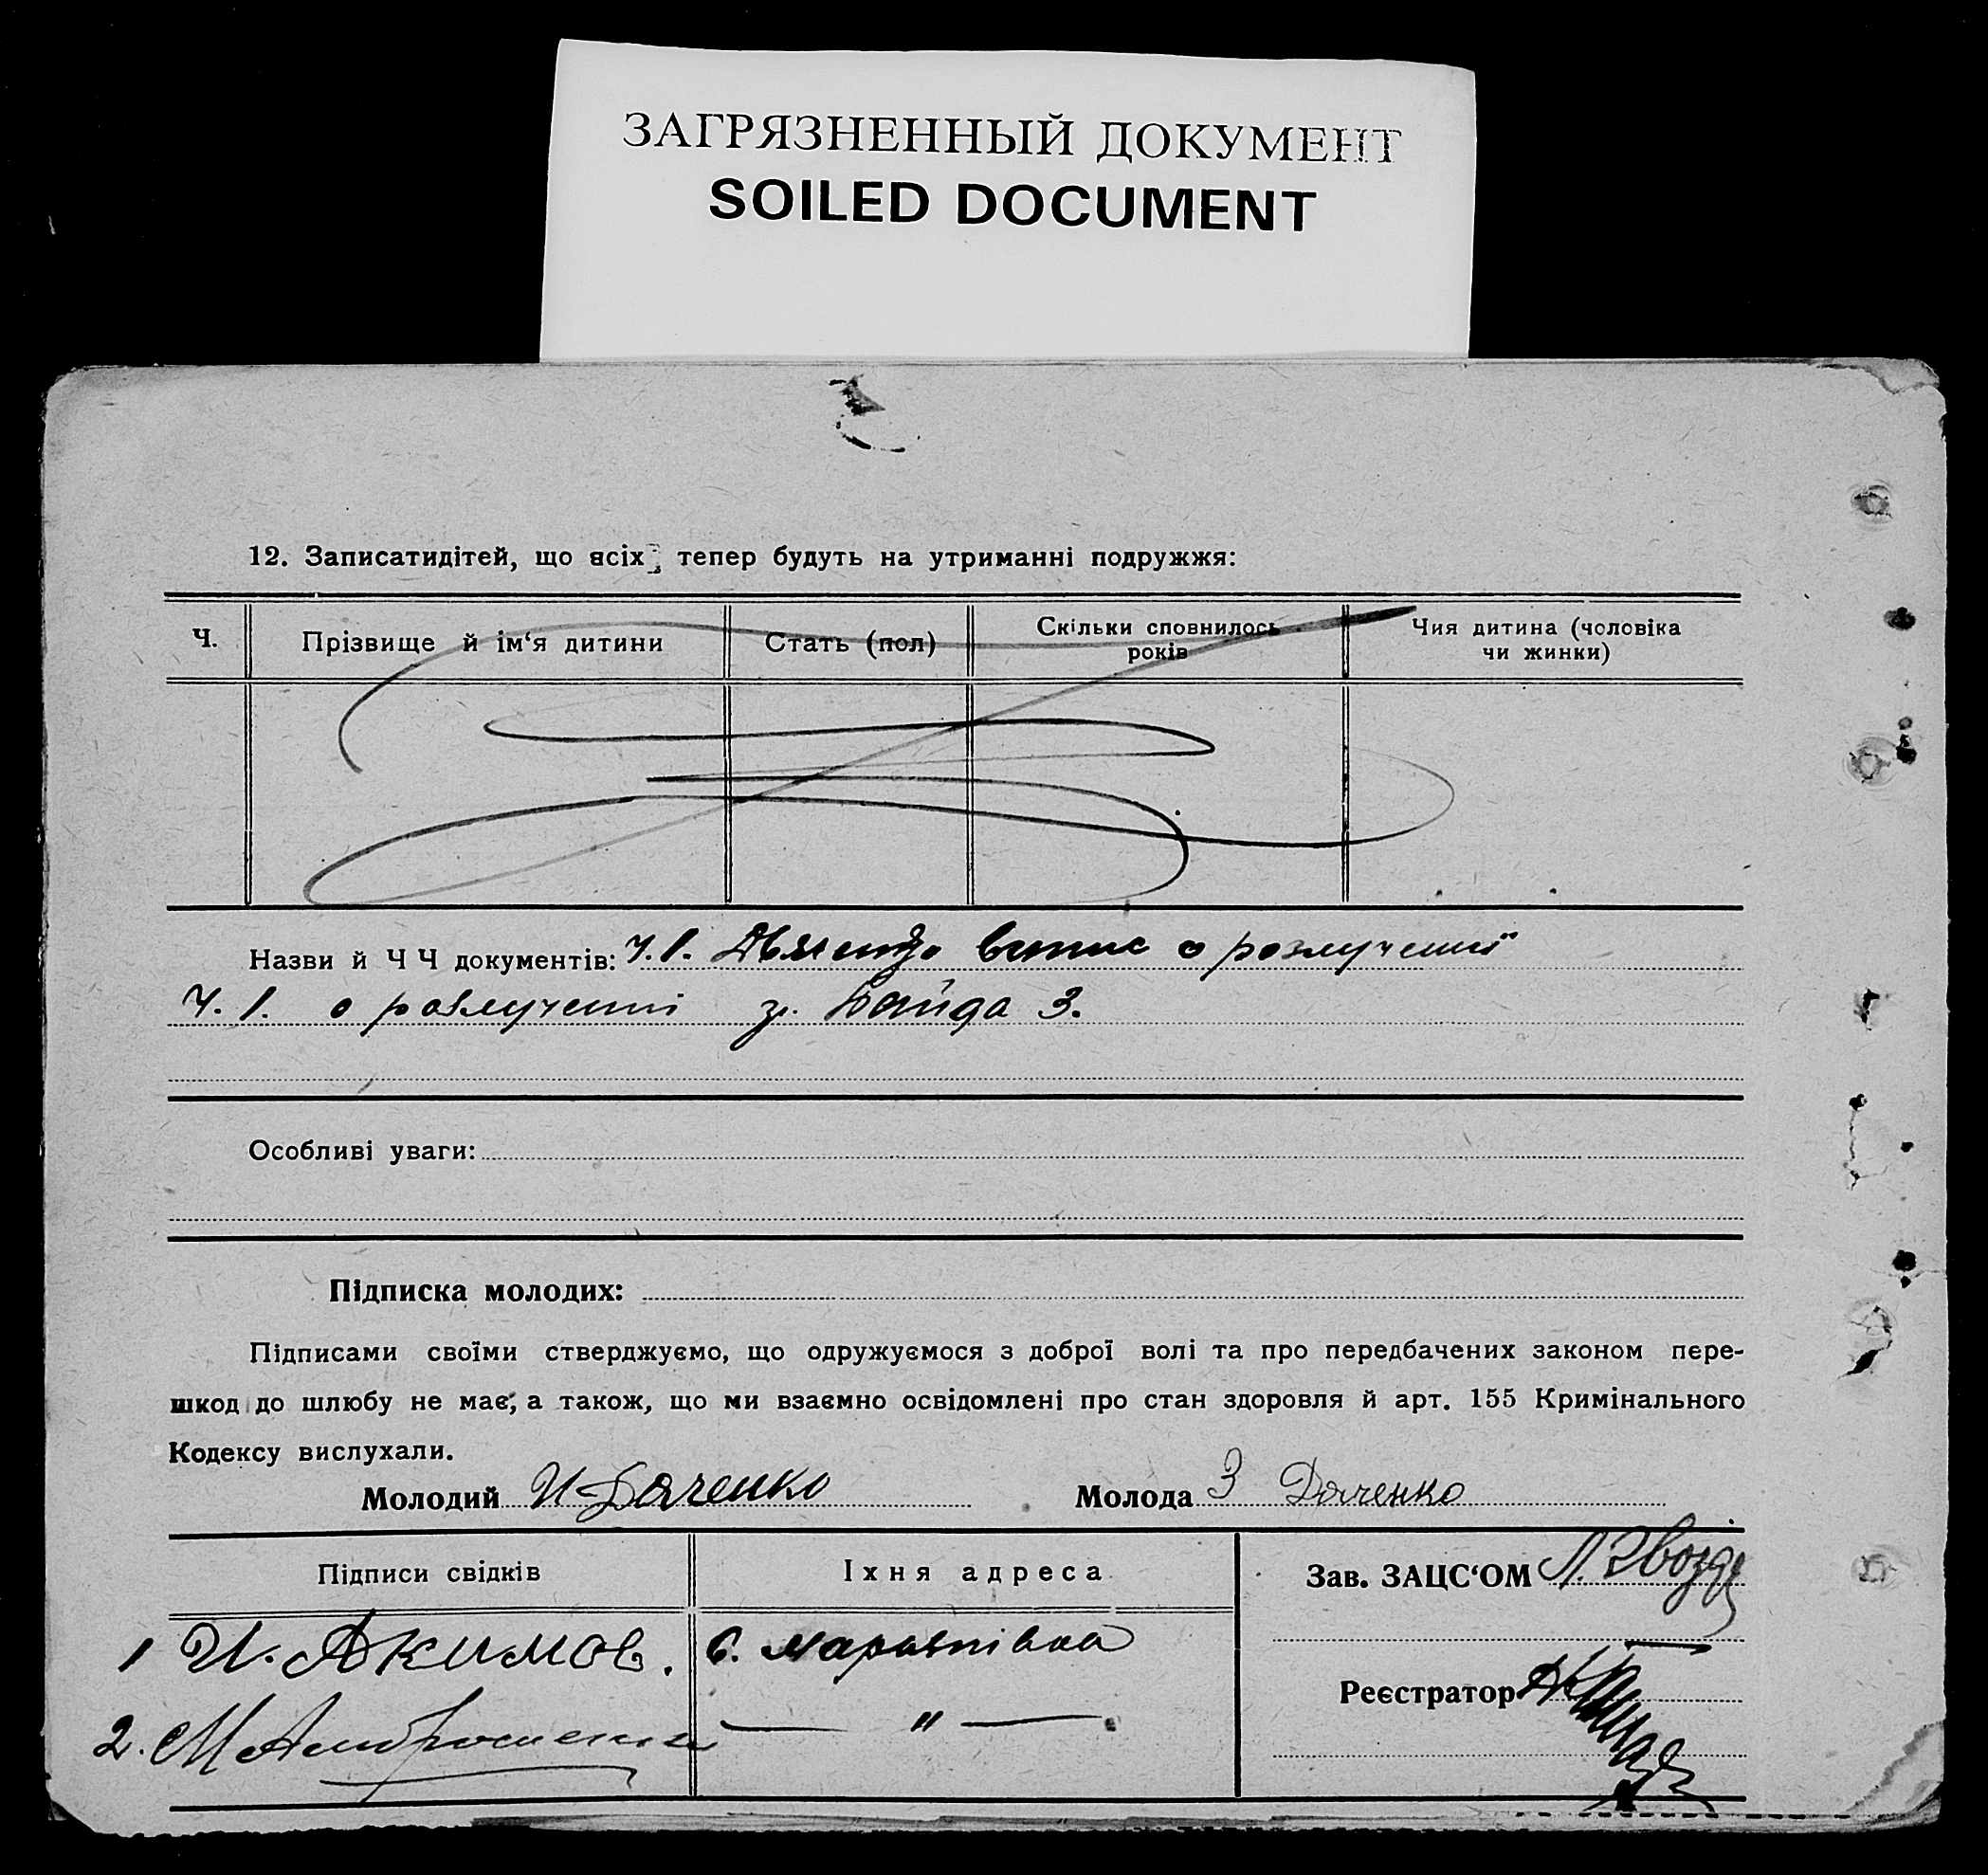 ЗАГРЯЗНЕННЫЙ ДОКУМЕНТ
SOILED DOCUMENT
12. Записатидітей, що всіх тепер будуть на утриманні подружжя:
Ч. Прізвище й ім‘я дитини Стать (пол) Скільки сповнилось Чия дитина (чоловіка
років чи жинки)
Назви й Ч Ч документів: Ч. 1. витис о розлученні
Ч. 1. о розлученні гр. Байда З.
Особливі уваги:
Підписка молодих:
Підписами своїми стверджуємо, що одружуємося з доброї волі та про передбачених законом пере-
шкод до шлюбу не має, а також, що ми взаємно освідомлені про стан здоровля й арт. 155 Кримінального
Кодексу вислухали.
Молодий И Дяченко Молода З Дяченко
Підписи свідків Іхня адреса Зав. ЗАЦС‘ОМ
1 И. Акимов. С.
Реєстратор
2. М "